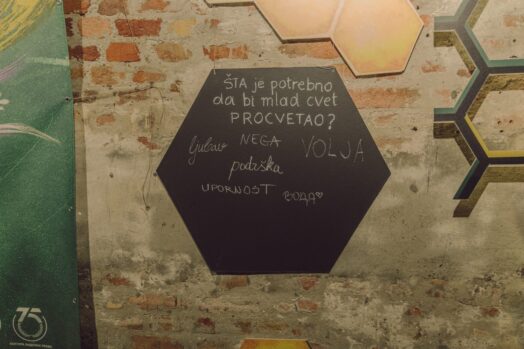 ŠTA je potrebno
da bi mlad cvet
PROCVETAO?
ljubav NEGA VOLJA
podrška
UPORNOST ВОДА♡
75